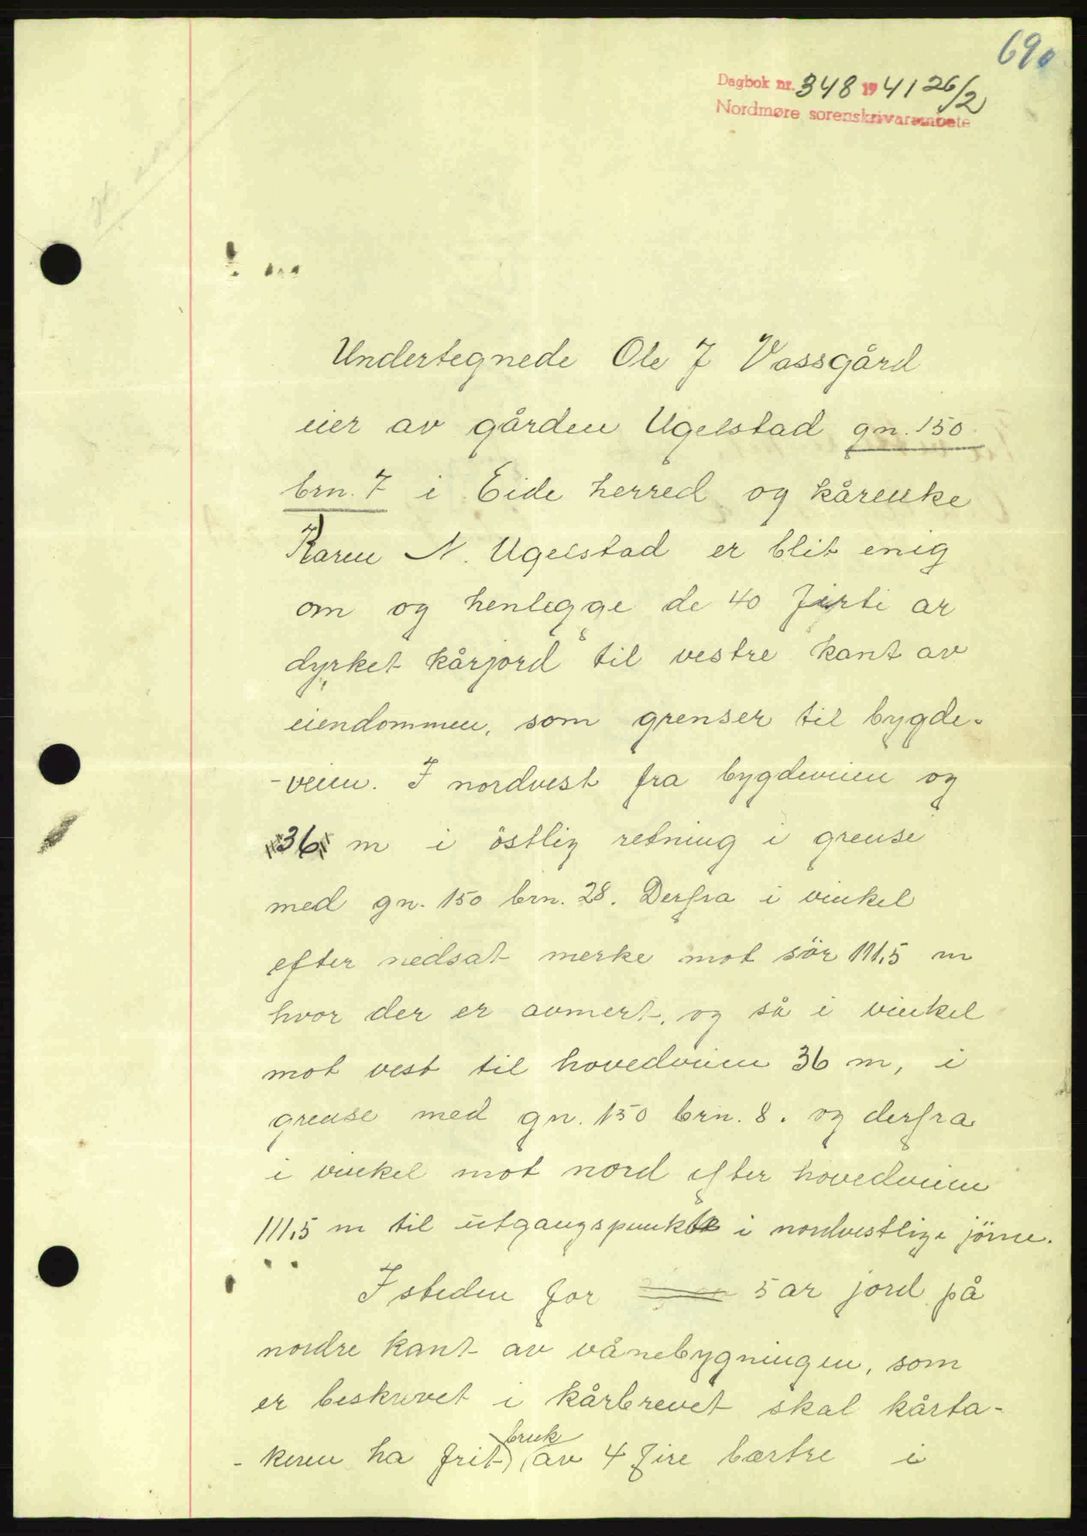 690
Dagbok nr. 348 1941 26/2
Nordmøre sorenskrivarembete
Undertegnede Ole J Vassgård
eier av gården Ugelstad gn. 150
brn. 7 i Eide herred og kårenke
Karen N. Ugelstad er blit enig
om og henlegge de 40 firti ar
dyrket kårjord til vestre kant av
eiendommen, som grenser til bygde-
-veien. I nordvest fra bygdeveien og
"36" m i östlig retning i grense
med gn. 150 brn. 28. Derfra i vinkel
efter nedsat merke mot sör 111,5 m
hvor der er avmert, og så i vinkel
mot vest til hovedveien 36 m, i
grense med gn. 150 brn. 8. og derfra
i vinkel mot nord efter hovedveien
111,5 m til utgangspunkte i nordvestlige jörne.
Isteden for 5 ar jord på
nordre kant av vånebygningen, som
er beskrevet i kårbrevet skal kårta-
bruk
-keren ha frit av 4 fire bærtre i